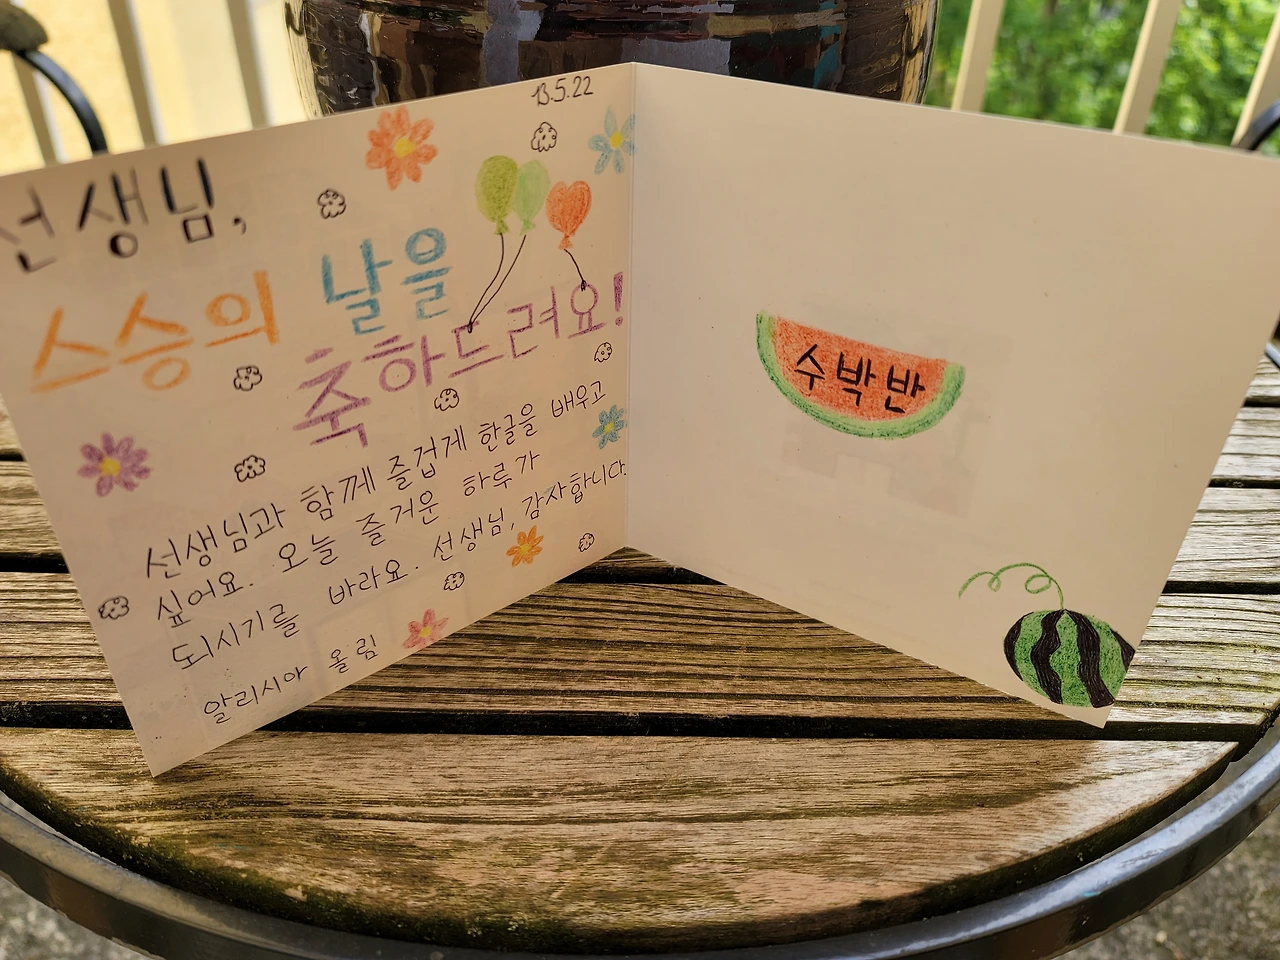 13.5.22
선생님,
스승의 날을
축하드려요!
선생님과 함께 즐겁게 한글을 배우고
싶어요. 오늘 즐거운 하루가
되시기를 바라요. 선생님, 감사합니다.
알리시아 올림
수박반